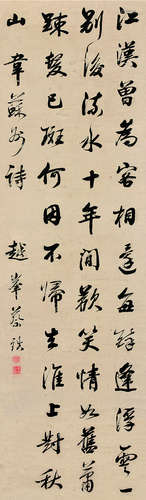 江漢曾為客相還每醉逢浮雲一
別後流水十年間歡笑情如舊蕭
疎鬢已斑何因不歸去淮上對秋
山 韋蘇州詩 越峯蔡